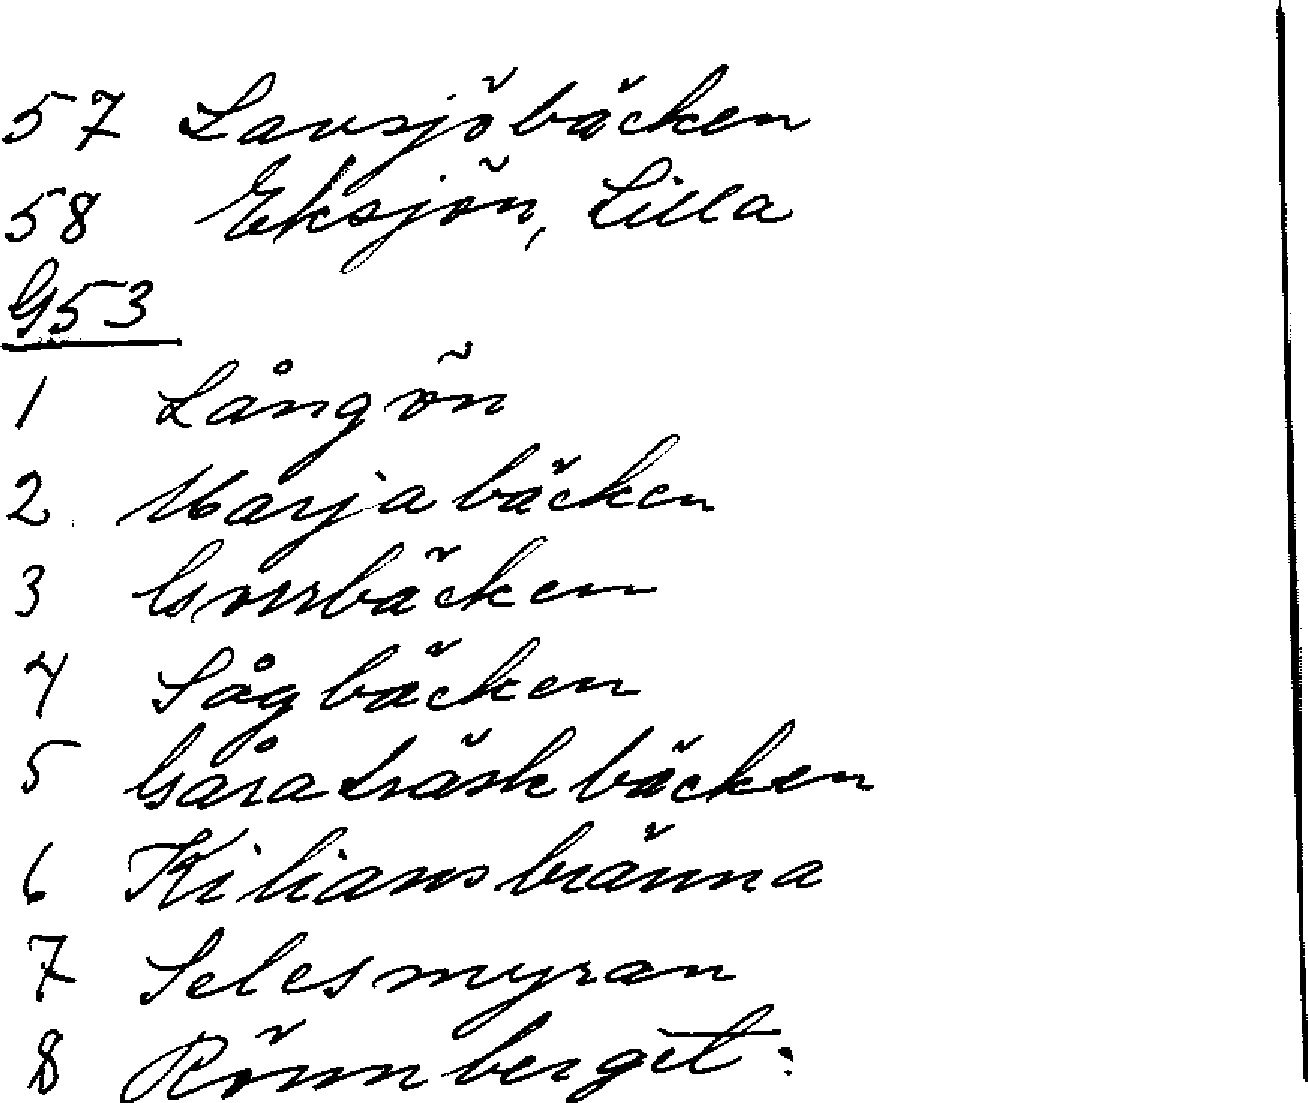 57 Lavsjöbäcken
58 Eksjön, Lilla
G53
1 Långön
2. Marjabäcken
3 Gorrbäcken
4 Sågbäcken
5 Gåraträskbäcken
6 Kiliansbränna
7 Selesmyran
8 Rönnberget.